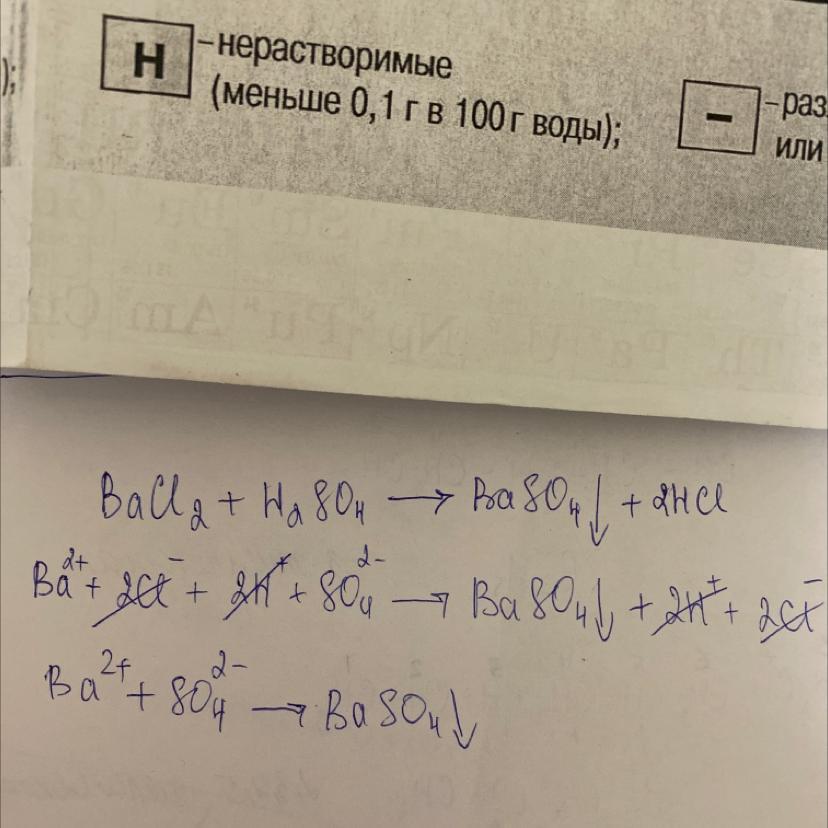 );
Н – нерастворимые
(меньше 0,1 г в 100 г воды);
– – раз
или
BaCl₂ + H₂SO₄ → BaSO₄↓ + 2HCl
Ba²⁺ + 2Cl⁻ + 2H⁺ + SO₄²⁻ → BaSO₄↓ + 2H⁺ + 2Cl⁻
Ba²⁺ + SO₄²⁻ → BaSO₄↓